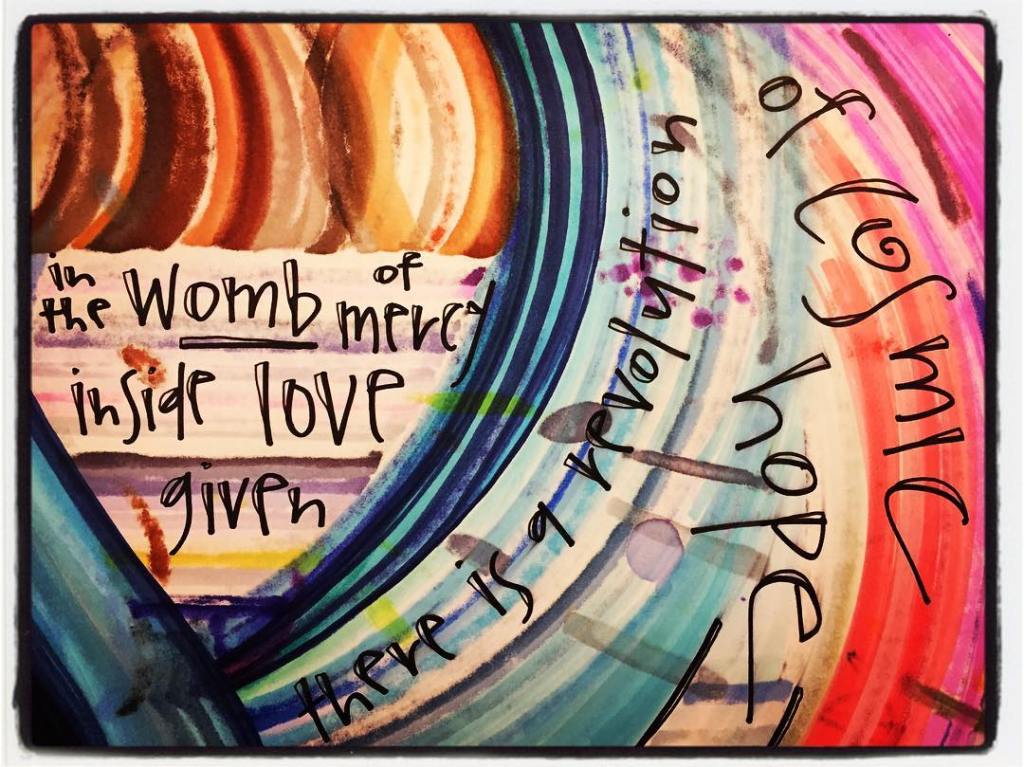 in the womb of mercy
inside love
given
there is a revolution
of cosmic
hope